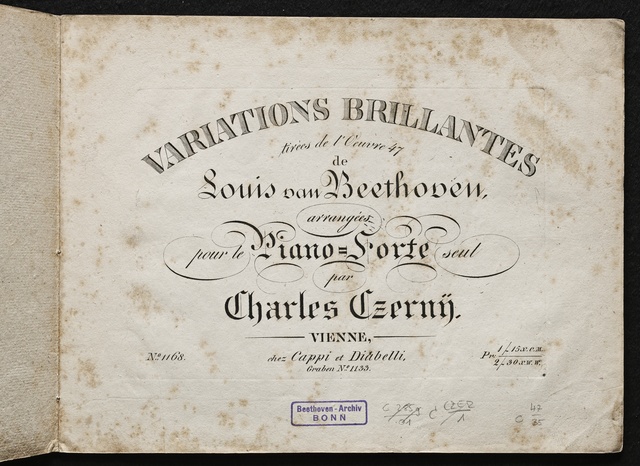 VARIATIONS BRILLANTES
tirées de l'Oeuvre 47
de
Louis van Beethoven,
arrangées
pour le Piano=Forte seul
par
Charles Czernÿ.
VIENNE,
chez Cappi et Diabelli,
Graben No. 1133.
No. 1168.
Pr. 1 f 15 x. c. m.
2 f 30 x. w. w.
Beethoven-Archiv
BONN
C 47
35